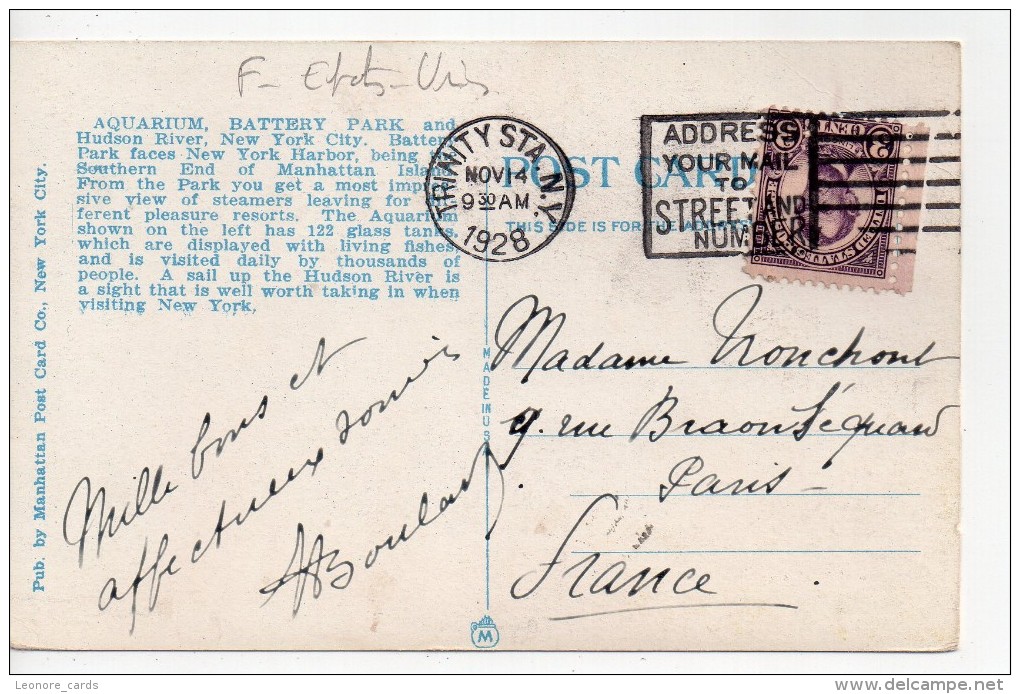 F- Etats-Unis
AQUARIUM, BATTERY PARK and
Hudson River, New York City. Batter
Park faces New York Harbor, being
Southern End of Manhattan Island
From the Park you get a most impr
sive view of steamers leaving for
ferent pleasure resorts. The Aquarium
shown on the left has 122 glass tanks
which are displayed with living fishes
and is visited daily by thousands of
people. A sail up the Hudson River is
a sight that is well worth taking in when
visiting New York.
Pub. by Manhattan Post Card Co., New York City.
Mille bons et
affectueux souvenirs
TRINITY STA. N.Y.
NOV 14
9 30 AM
1928
POST CARD
THIS SIDE IS FOR THE ADDRESS
ADDRESS
YOUR MAIL
TO
STREET AND
NUMBER
MADE IN USA
M
Madame
9. rue Brown Séquard
Paris-
France
Leonore_cards
delcampe.net